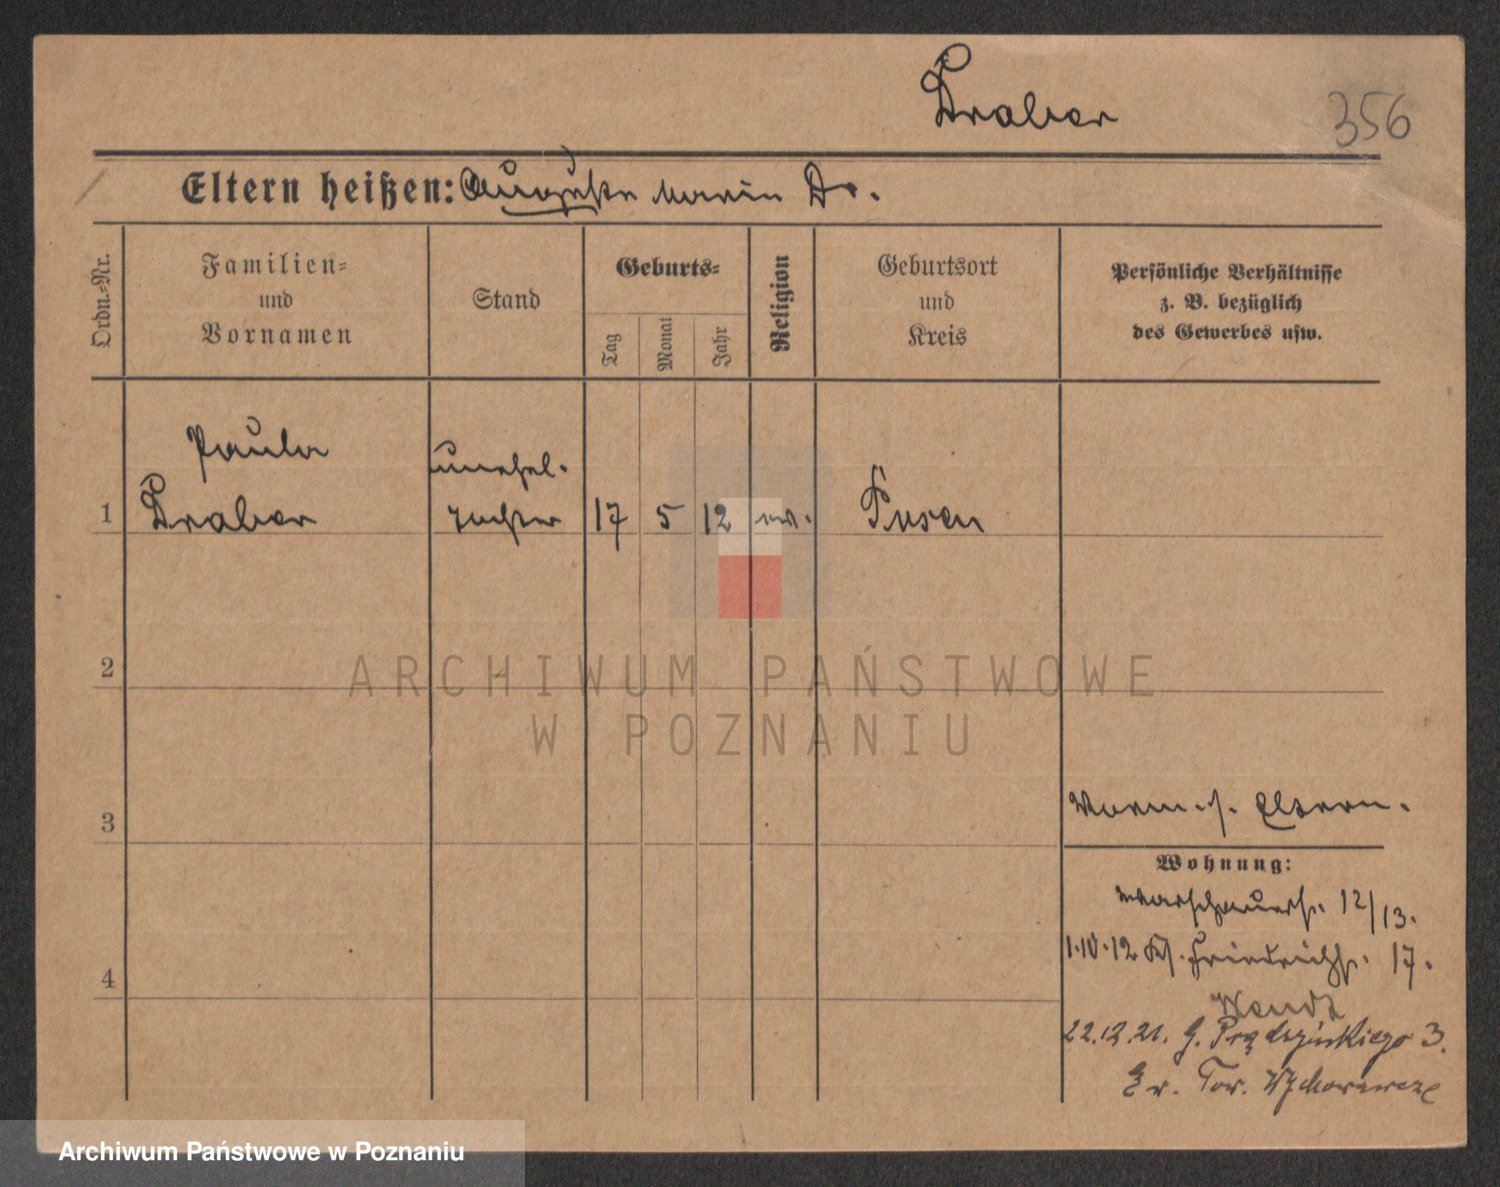 Draber
356
Eltern heißen: Auguste Marie Dr.
Ordn.-Nr.
Familien-
und
Vornamen
Stand
Geburts-
Tag
Monat
Jahr
Religion
Geburtsort
und
Kreis
Persönliche Verhältnisse
z. B. bezüglich
des Gewerbes usw.
Paula
unehel.
1
Draber
Tochter
17
5
12
ev.
Posen
2
ARCHIWUM PAŃSTWOWE
W POZNANIU
3
Vorm. s. Eltern.
Wohnung:
Warschauerstr. 12/13.
1.10.12 Friedrichstr. 17.
Wendt
4
22.12.21. G. Prądzyńskiego 3.
Ew. Tow. Wychowawcze
Archiwum Państwowe w Poznaniu